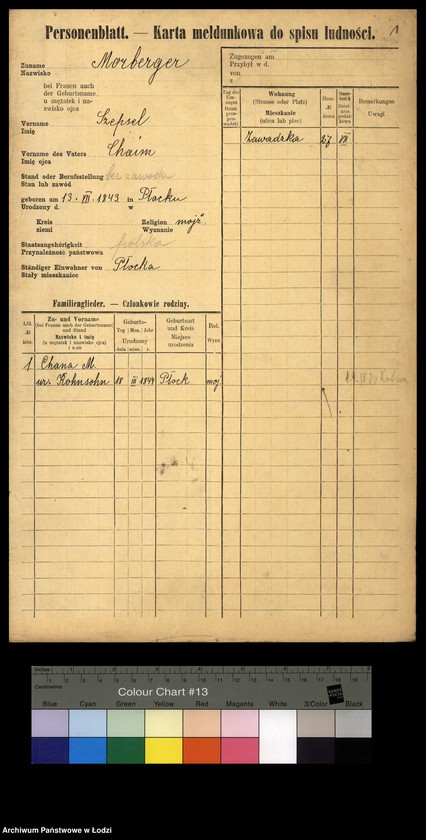 Personenblatt. — Karta meldunkowa do spisu ludności. 1
Zuname
Nazwisko
Morberger
bei Frauen auch
der Geburtsname
u mężatek i na-
zwisko ojca
Vorname
Imię
Szepsel
Vorname des Vaters
Imię ojca
Chaim
Stand oder Berufsstellung
Stan lub zawód
bez zawodu
geboren am 13. VII. 1843 in Płocku
Urodzony d. w
Kreis
ziemi
Religion
Wyznanie
mojż.
Staatsangehörigkeit
Przynależność państwowa
polska
Ständiger Einwohner von
Stały mieszkaniec
Płocka
Familienglieder. — Członkowie rodziny.
Zu- und Vorname
(bei Frauen auch der Geburtsname)
und Stand
Nazwisko i imię
(u mężatek i nazwisko ojca)
i stan
Geburts-
Tag Mon. Jahr
Urodzony
dnia mies. r.
Geburtsort
und Kreis
Miejsce
urodzenia
Rel.
Wyzn.
1 Chana M.
ur. Kohnsohn 18 III 1844 Płock moj
Zugezogen am
Przybył w d.
von
z
Wohnung
(Strasse oder Platz)
Mieszkanie
(ulica lub plac)
Haus-
№
domu
Bemerkungen
Uwagi
Zawadzka 27 VII
Inches
Centimetres
Colour Chart #13
Blue Cyan Green Yellow Red Magenta White 3/Color Black
Archiwum Państwowe w Łodzi